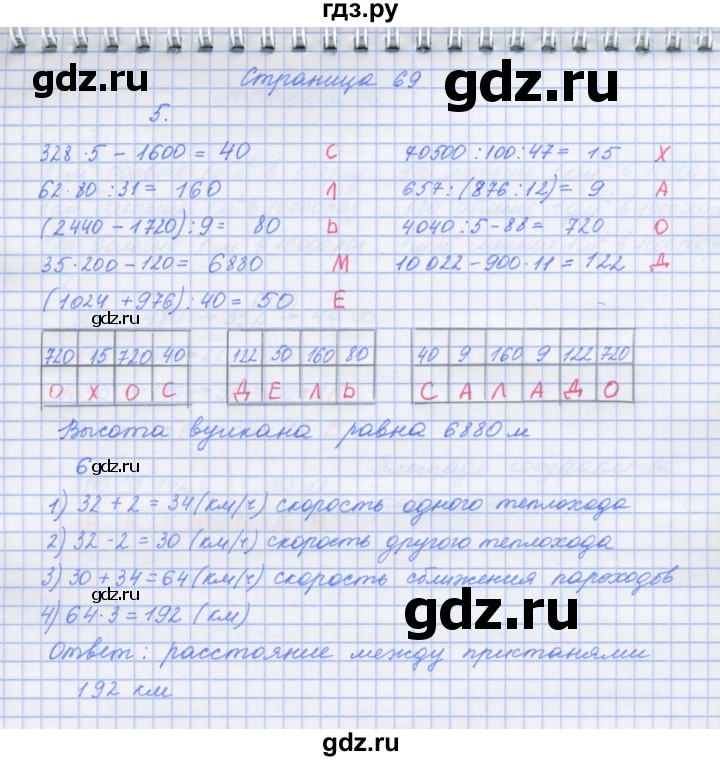 гдз.ру
gdz.ru
gdz.ru
Страница 69
5.
328 · 5 - 1600 = 40 С
70500 : 100 : 47 = 15 Х
62 · 80 : 31 = 160 Л
657 : (876 : 12) = 9 А
(2440 - 1720) : 9 = 80 Ь
4040 : 5 - 88 = 720 О
35 · 200 - 120 = 6880 М
10 022 - 900 · 11 = 122 Д
(1024 + 976) : 40 = 50 Е
gdz.ru
720 15 720 40
О Х О С
122 50 160 80
Д Е Л Ь
40 9 160 9 122 720
С А Л А Д О
Высота вулкана равна 6880 м
6
gdz.ru
1) 32 + 2 = 34 (км/ч) скорость одного теплохода
2) 32 - 2 = 30 (км/ч) скорость другого теплохода
3) 30 + 34 = 64 (км/ч) скорость сближения пароходов
gdz.ru
4) 64 · 3 = 192 (км)
gdz.ru
Ответ: расстояние между пристанями
192 км
gdz.ru
gdz.ru